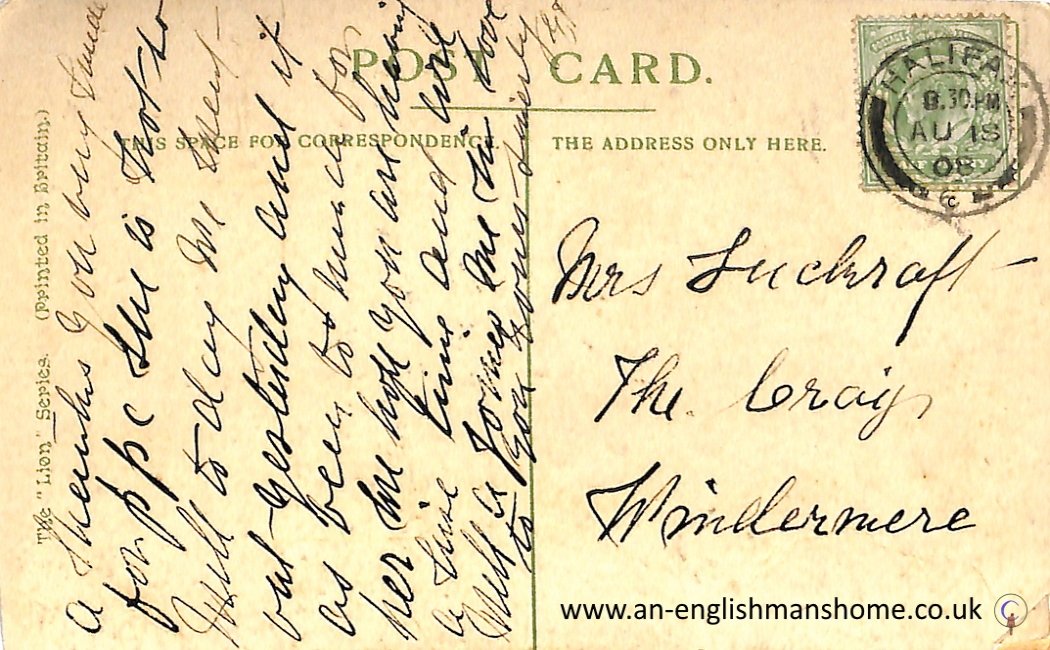 POST CARD.
THIS SPACE FOR CORRESPONDENCE.
THE ADDRESS ONLY HERE.
The "Lion" Series. (Printed in Britain.)
HALIFAX
8.30 PM
AU 18
08
C
a thanks you very
for ppc she is not so
well to day we went
out yesterday and it
as been to much for
her we hope you are having
a time and will
love
to you yours
Mrs Luckraft
The Craig
Windermere
www.an-englishmanshome.co.uk